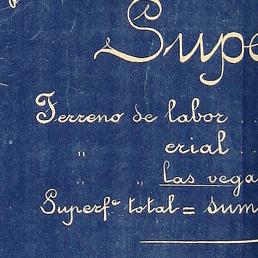 Supe
Terreno de labor . .
„ erial . .
„ „ las vega
Superf.ᵉ total = sum